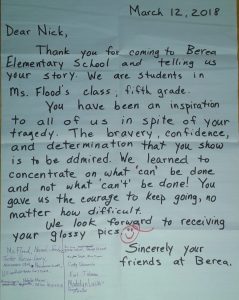 March 12, 2018
Dear Nick,
Thank you for coming to Berea
Elementary School and telling us
your story. We are students in
Ms. Flood's class, fifth grade.
You have been an inspiration
to all of us in spite of your
tragedy. The bravery, confidence,
and determination that you show
is to be admired. We learned to
concentrate on what "can" be done
and not what "can't" be done! You
gave us the courage to keep going, no
matter how difficult.
We look forward to receiving
your glossy pics.
Sincerely your
friends at Berea.
Ms. Flood